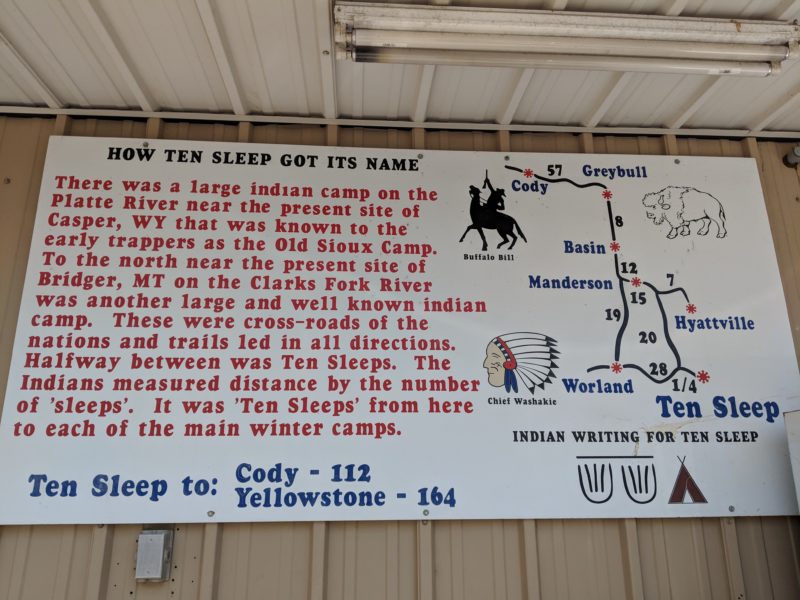 HOW TEN SLEEP GOT ITS NAME
There was a large indian camp on the
Platte River near the present site of
Casper, WY that was known to the
early trappers as the Old Sioux Camp.
To the north near the present site of
Bridger, MT on the Clarks Fork River
was another large and well known indian
camp. These were cross-roads of the
nations and trails led in all directions.
Halfway between was Ten Sleeps. The
Indians measured distance by the number
of 'sleeps'. It was 'Ten Sleeps' from here
to each of the main winter camps.
Ten Sleep to:
Cody - 112
Yellowstone - 164
Buffalo Bill
Cody
57
Greybull
8
Basin
12
Manderson
15
7
Hyattville
19
20
Worland
28
1/4
Ten Sleep
Chief Washakie
INDIAN WRITING FOR TEN SLEEP